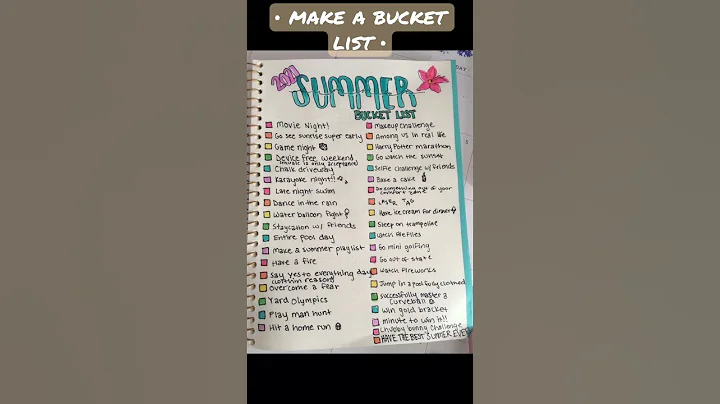 • MAKE A BUCKET
LIST •
2021
SUMMER
BUCKET LIST
Movie Night!
Go see sunrise super early
Game night
Device free weekend
(music is only acceptance)
Chalk driveway
Karaoke night!!
Late night swim
Dance in the rain
Water balloon fight
Staycation w/ friends
Entire pool day
Make a summer playlist
Have a fire
Say yes to everything day
(within reason)
Overcome a fear
Yard Olympics
Play man hunt
Hit a home run
Makeup challenge
Among us in real life
Harry Potter marathon
Go watch the sunset
Selfie challenge w/ friends
Bake a cake
Do something out of your
comfort zone
LASER TAG
Have ice cream for dinner
Sleep on trampoline
Watch fireflies
Go mini golfing
Go out of state
Watch Fireworks
Jump in a pool fully clothed
Successfully master a
curveball
Win gold bracket
minute to win it!!
Chubby bunny challenge
HAVE THE BEST SUMMER EVER